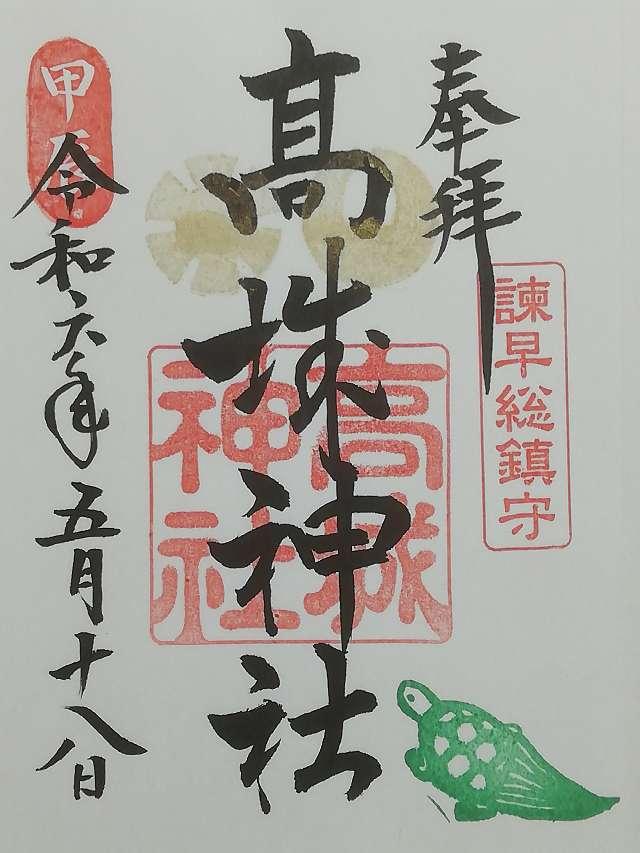 奉拝
諫早総鎮守
高城神社
高城
神社
甲辰
令和六年五月十八日